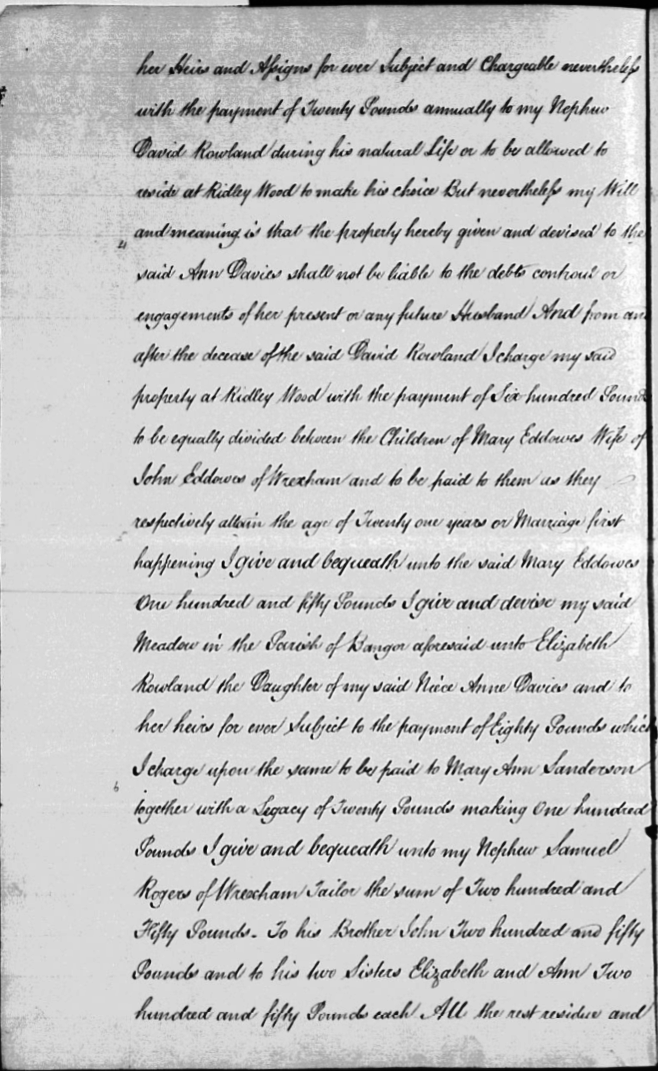 her Heirs and Assigns for ever Subject and Chargeable nevertheless
with the payment of Twenty Pounds annually to my Nephew
David Rowland during his natural Life or to be allowed to
reside at Ridley Wood to make his choice But nevertheless my Will
and meaning is that the property hereby given and devised to the
said Ann Davies shall not be liable to the debts controul or
engagements of her present or any future Husband And from and
after the decease of the said David Rowland I charge my said
property at Ridley Wood with the payment of Six hundred Pounds
to be equally divided between the Children of Mary Eddowes Wife of
John Eddowes of Wrexham and to be paid to them as they
respectively attain the age of Twenty one years or Marriage first
happening I give and bequeath unto the said Mary Eddowes
One hundred and fifty Pounds I give and devise my said
Meadow in the Parish of Bangor aforesaid unto Elizabeth
Rowland the Daughter of my said Niece Anne Davies and to
her heirs for ever Subject to the payment of Eighty Pounds which
I charge upon the same to be paid to Mary Ann Sanderson
together with a Legacy of Twenty Pounds making One hundred
Pounds I give and bequeath unto my Nephew Samuel
Rogers of Wrexham Tailor the sum of Two hundred and
Fifty Pounds - To his Brother John Two hundred and fifty
Pounds and to his two Sisters Elizabeth and Ann Two
hundred and fifty Pounds each All the rest residue and